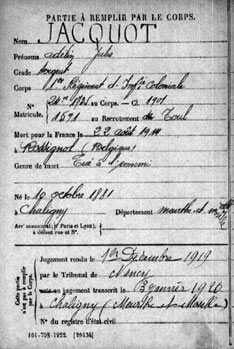 PARTIE À REMPLIR PAR LE CORPS.
Nom JACQUOT
Prénoms Jules
Grade Sergent
Corps 1er Régiment d'Infie Coloniale
N° au Corps. — Cl. 1901
Matricule. 1571 au Recrutement de Toul
Mort pour la France le 22 août 1914
à Rossignol (Belgique)
Genre de mort Tué à l'ennemi
Né le 19 octobre 1881
à Chaligny Département Meurthe et Moselle
Arrt municipal (pr Paris et Lyon),
à défaut rue et N°.
Cette partie
n'est pas à remplir
par le Corps.
Jugement rendu le 1er Décembre 1919
par le Tribunal de Nancy
jugement transcrit le janvier 1920
à Chaligny (Meurthe et Moselle)
N° du registre d'état civil
101-708-1922. [26434]